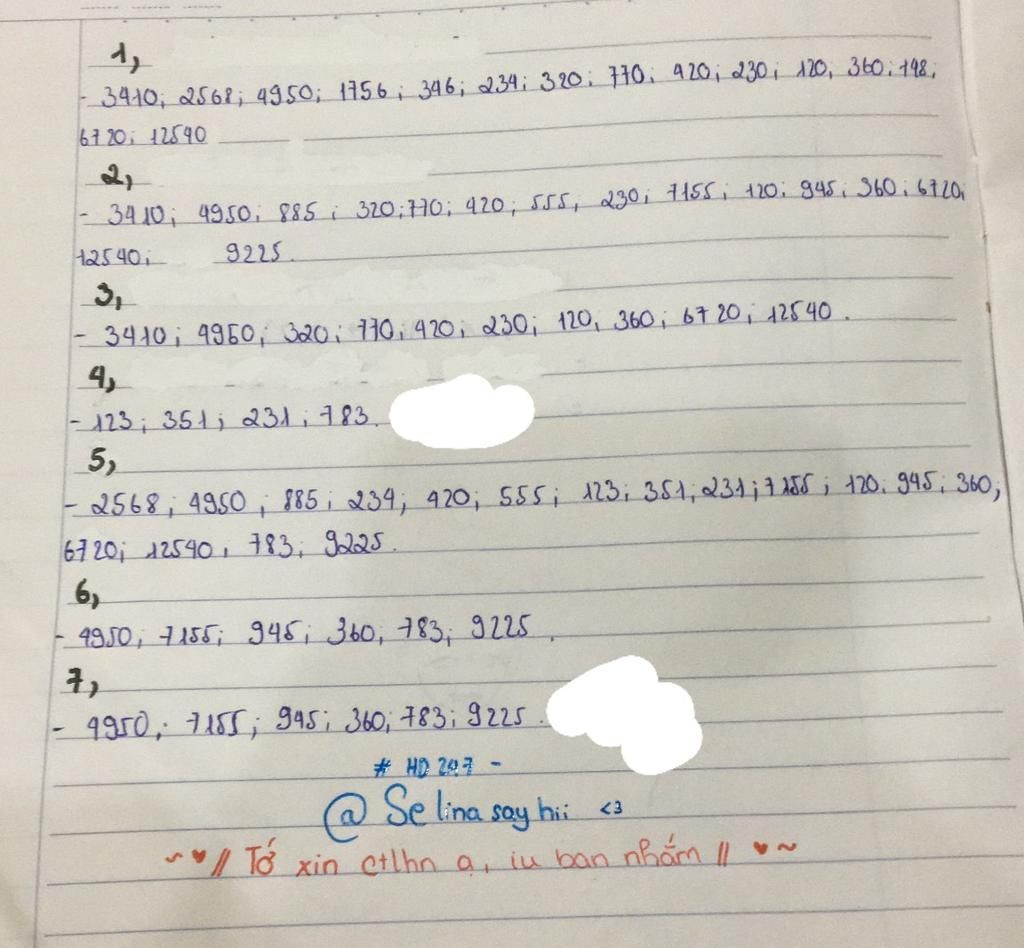 1,
- 3410; 2568; 4950; 1756; 346; 234; 320; 770; 420; 230; 120; 360; 198;
6720; 12540
2,
- 3410; 4950; 885; 320; 770; 420; 555; 230; 7155; 120; 945; 360; 6720;
12540; 9225.
3,
- 3410; 4950; 320; 770; 420; 230; 120, 360; 6720; 12540.
4,
- 123; 351; 231; 783.
5,
- 2568; 4950; 885; 234; 420; 555; 123; 351; 231; 7155; 120; 945; 360;
6720; 12540; 783; 9225.
6,
- 4950; 7155; 945; 360; 783; 9225.
7,
- 4950; 7155; 945; 360; 783; 9225.
# HD 247 -
@ Selina say hii <3
~♥ // Tớ xin ctlhn ạ, iu bạn nhắm // ♥~